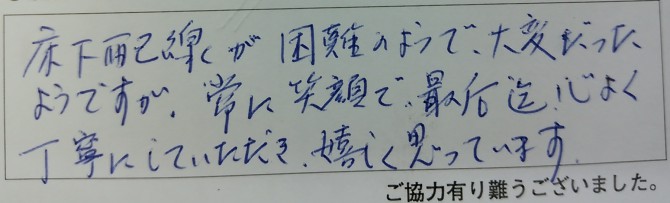 床下配線が困難のようで、大変だった
ようですが、常に笑顔で、最后迄心よく
丁寧にしていただき、嬉しく思っています。
ご協力有り難うございました。